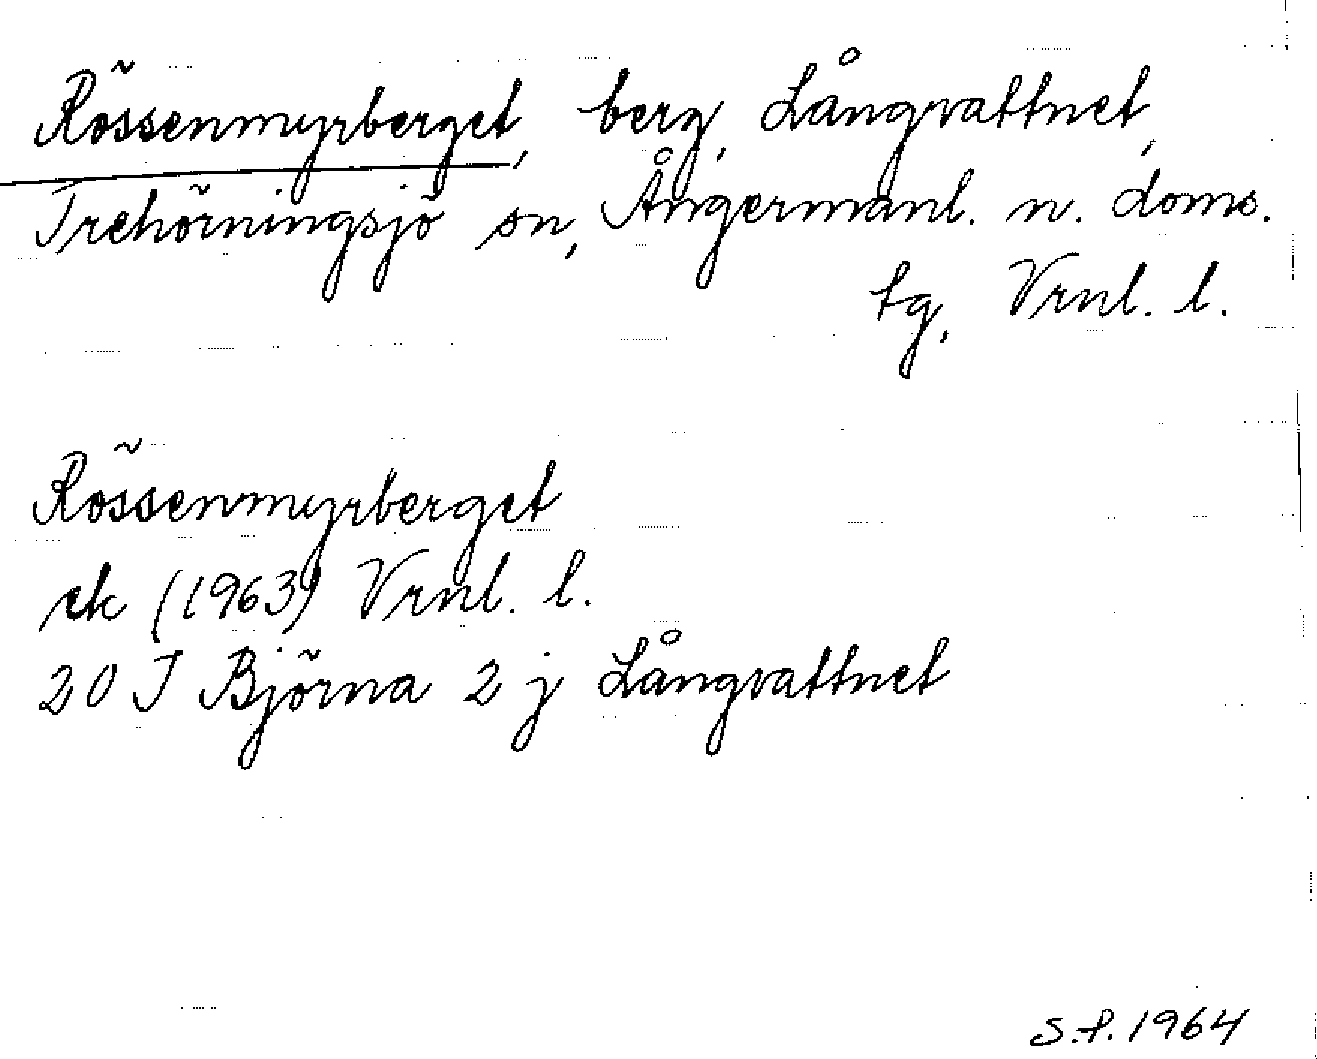 Rössenmyrberget, berg, Långvattnet,
Trehörningsjö sn, Ångermanl. n. doms.
tg, Vrnl. l.
Rössenmyrberget
ek (1963) Vrnl. l.
20 J Björna 2 j Långvattnet
S.P. 1964